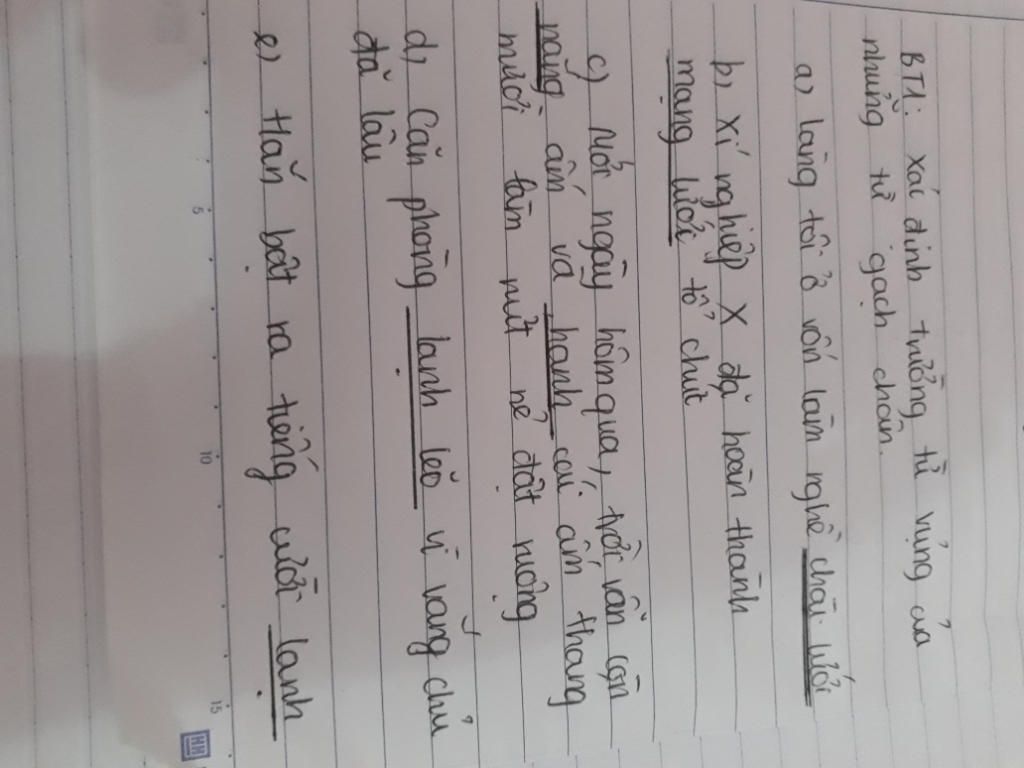 BT1: Xác định trường từ vựng của
những từ gạch chân.
a) làng tôi ở vốn làm nghề chài lưới
b) Xí nghiệp X đã hoàn thành
mạng lưới tổ chức
c) Mới ngày hôm qua, trời vẫn còn
nắng ấm và hanh cái ấm tháng
mười làm nứt nẻ đất ruộng
d) Căn phòng lạnh lẽo vì vắng chủ
đã lâu
e) Hắn bật ra tiếng cười lạnh
5
10
15